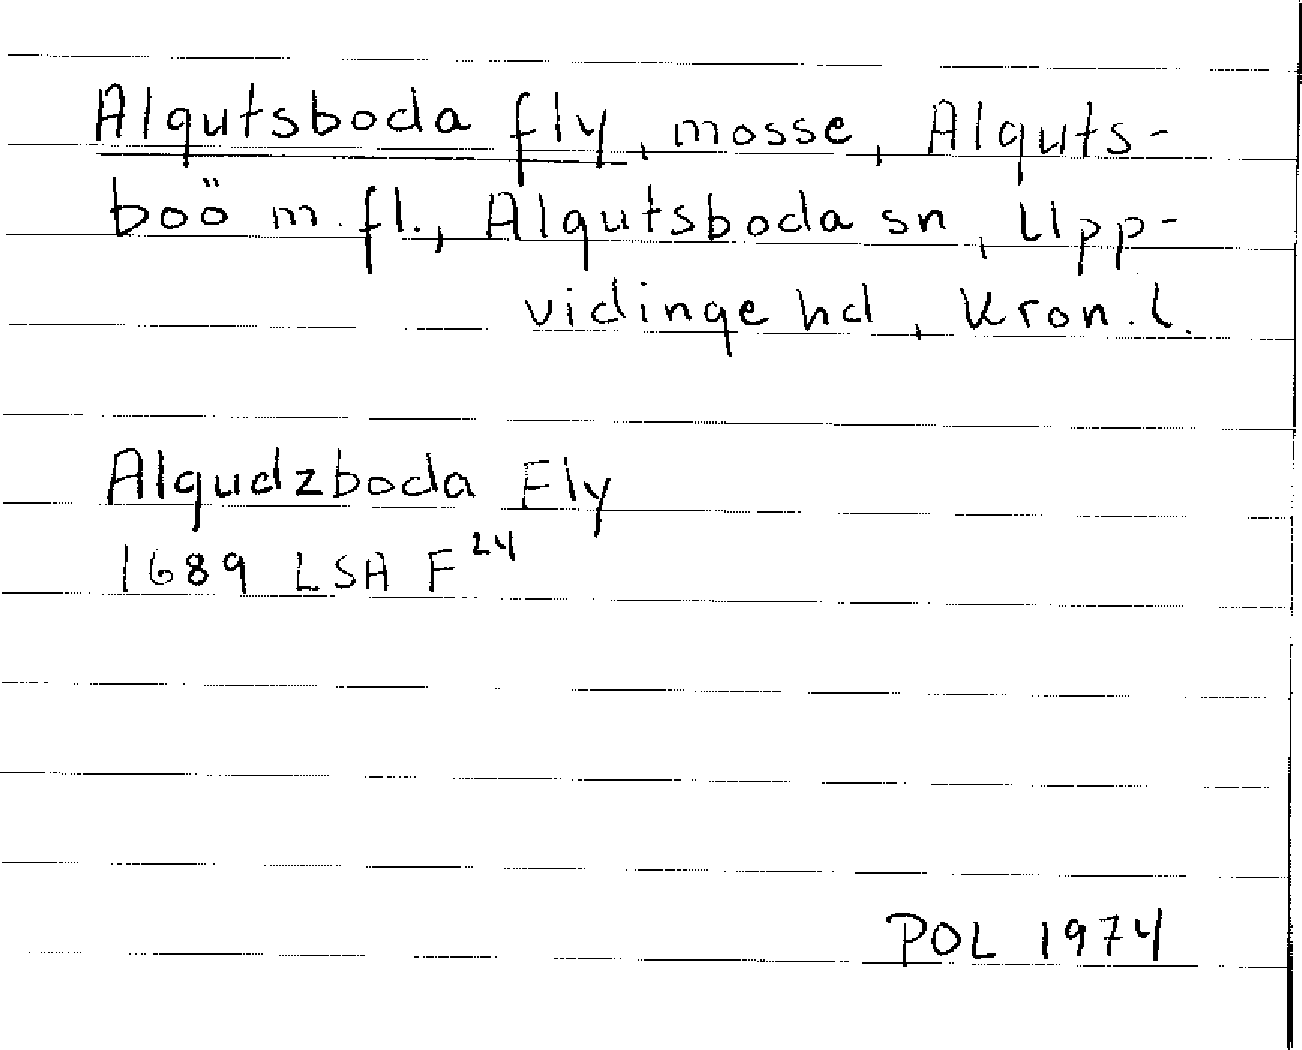 Algutsboda fly, mosse, Alguts-
boö m.fl., Algutsboda sn, Upp-
vidinge hd, Kron.l.
Algudzboda Fly
1689 LSA F24
POL 1974